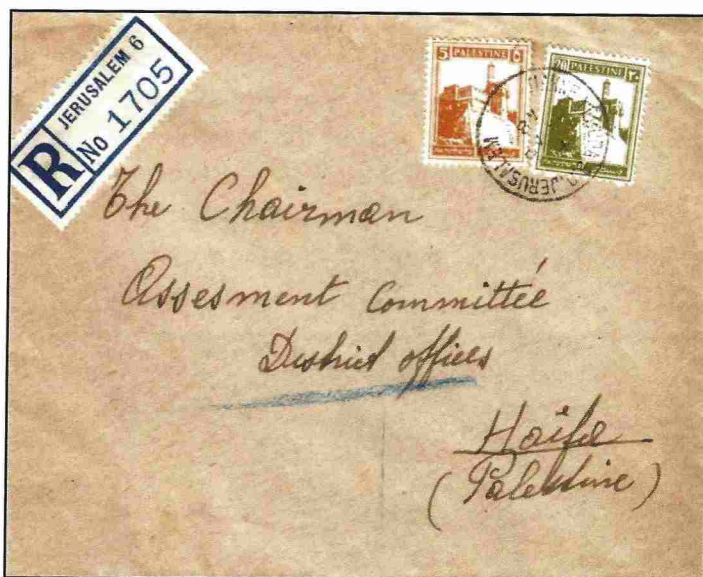 R
JERUSALEM 6
No 1705
5 PALESTINE ٥
20 PALESTINE ٢٠
JERUSALEM
The Chairman
Assesment Committée
District offices
Haifa
(Palestine)